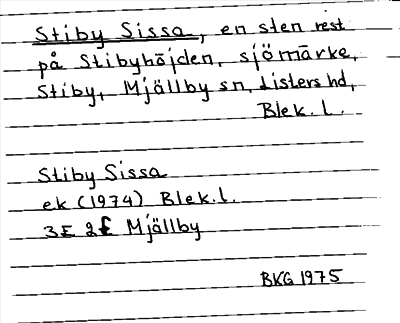 Stiby Sissa, en sten rest
på Stibyhöjden, sjömärke,
Stiby, Mjällby sn, Listers hd,
Blek. l.
Stiby Sissa
ek (1974) Blek. l.
3E 2f Mjällby
BKG 1975